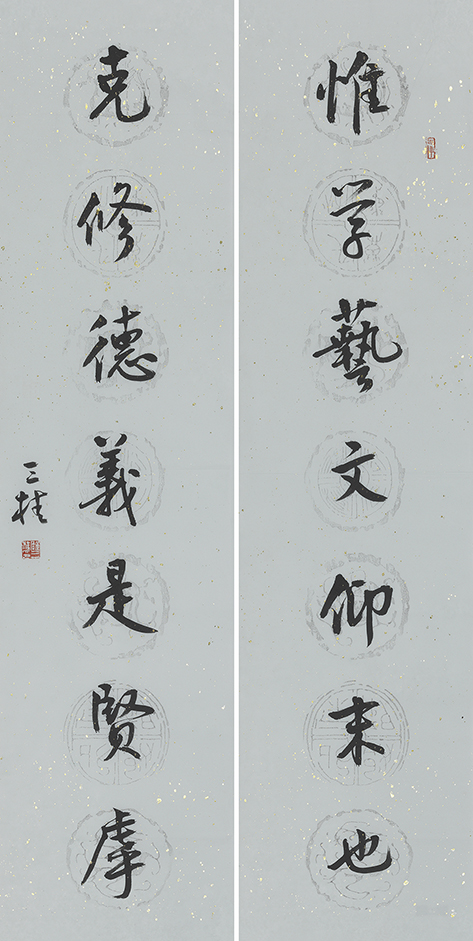 惟学藝文仰末也
克修德義是賢虖
三桂